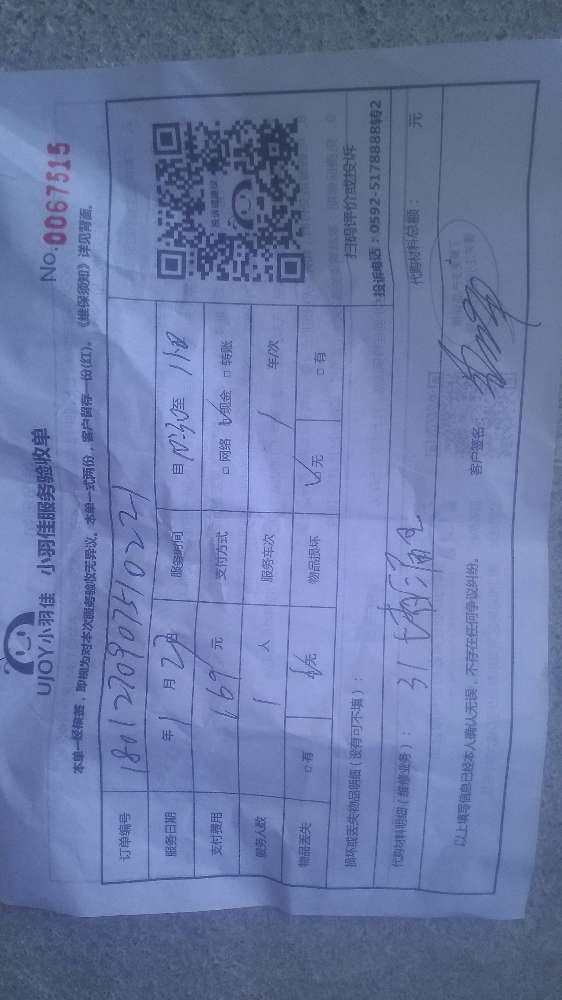 No.0067515
UJOY小羽佳 小羽佳服务验收单
本单一经核签，即视为对本次服务验收无异议。本单一式两份，客户留存一份(红)。《维保须知》详见背面。
订单编号 180127090751022
服务日期 年1月27日 服务时间 自10:30至11:
支付费用 169元 支付方式 □网络 ☑现金 □转账
服务人数 1人 服务车次 1车/次
物品丢失 □有 ☑无 物品损坏 ☑无 □有
投诉或建议
扫码评价或投诉
投诉电话：0592-5178888转2
损坏或丢失物品明细（没有可不填）：
代购材料明细（维修业务）： 31 代购材料总额： 元
以上填写信息已经本人确认无误，不存在任何争议纠纷。 客户签名：